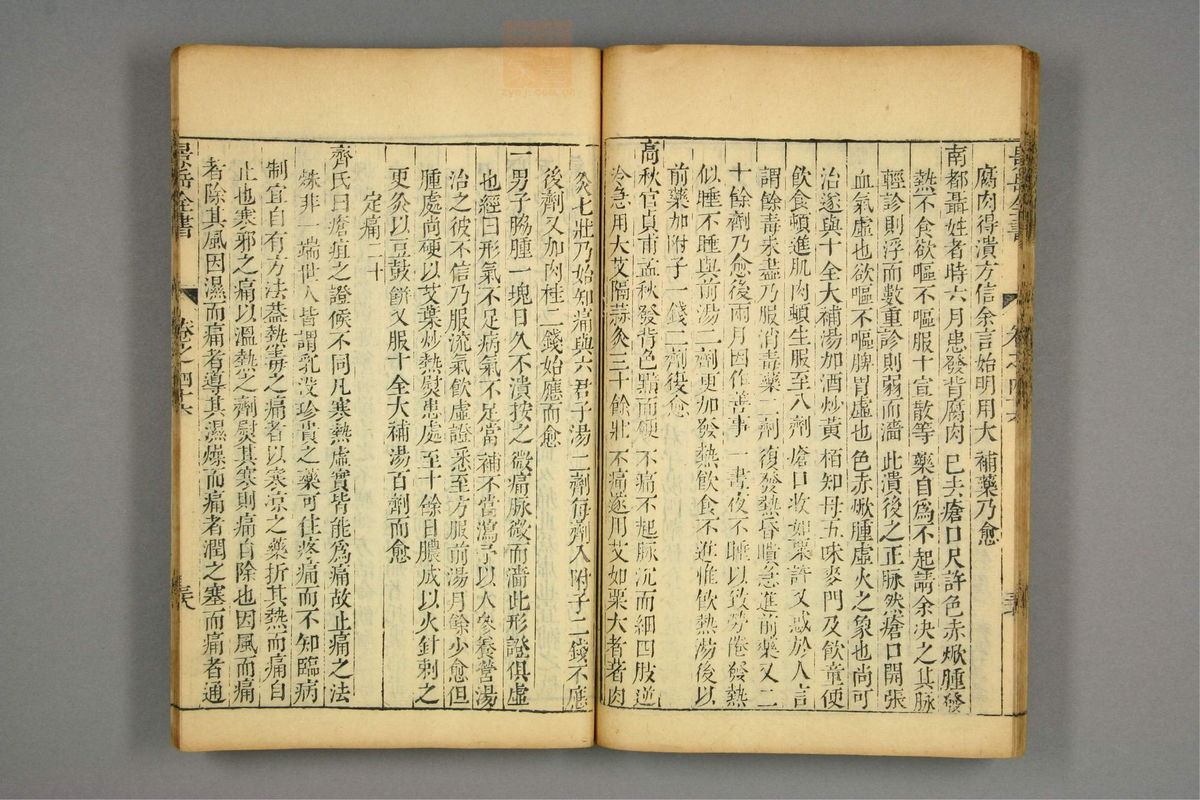 腐肉得潰方信余言始明用大補藥乃愈
南都聶姓者時六月患發背腐肉已去瘡口尺許色赤焮腫發
熱不食欲嘔不嘔服十宣散等藥自為不起請余決之其脉
輕診則浮而數重診則弱而濇此潰後之正脉然瘡口開張
血氣虛也欲嘔不嘔脾胃虛也色赤焮腫虛火之象也尚可
治遂與十全大補湯加酒炒黃栢知母五味麥門及飲童便
飲食頓進肌肉頓生服至八劑瘡口收如粟許又惑於人言
謂餘毒未盡乃服消毒藥二劑復發熱昏瞶急進前藥又二
十餘劑乃愈後兩月因作善事一晝夜不睡以致勞倦發熱
似睡不睡與前湯二劑更加發熱飲食不進惟飲熱湯後以
前藥加附子一錢二劑復愈
高秋官貞甫孟秋發背色黯而硬不痛不起脉沉而細四肢逆
冷急用大艾隔蒜灸三十餘壯不痛遂用艾如栗大者著肉
灸七壯乃始知痛與六君子湯二劑每劑入附子二錢不應
後劑又加肉桂二錢始應而愈
一男子脇腫一塊日久不潰按之微痛脉微而濇此形證俱虛
也經曰形氣不足病氣不足當補不當瀉予以人參養營湯
治之彼不信乃服流氣飲虛證悉至方服前湯月餘少愈但
腫處尚硬以艾葉炒熱熨患處至十餘日膿成以火針刺之
更灸以豆豉餅又服十全大補湯百劑而愈
定痛二十
齊氏曰瘡疽之證候不同凡寒熱虛實皆能為痛故止痛之法
殊非一端世人皆謂乳沒珍貴之藥可住疼痛而不知臨病
制宜自有方法蓋熱毒之痛者以寒凉之藥折其熱而痛自
止也寒邪之痛以溫熱之劑熨其寒則痛自除也因風而痛
者除其風因濕而痛者導其濕燥而痛者潤之塞而痛者通
景岳全書
卷之四十六